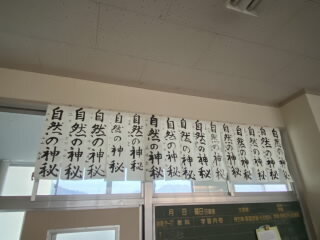 自然の神秘
自然の神秘
自然の神秘
自然の神秘
自然の神秘
自然の神秘
自然の神秘
自然の神秘
自然の神秘
自然の神秘
自然の神秘
自然の神秘
自然の神秘
自然の神秘
月 日 曜日